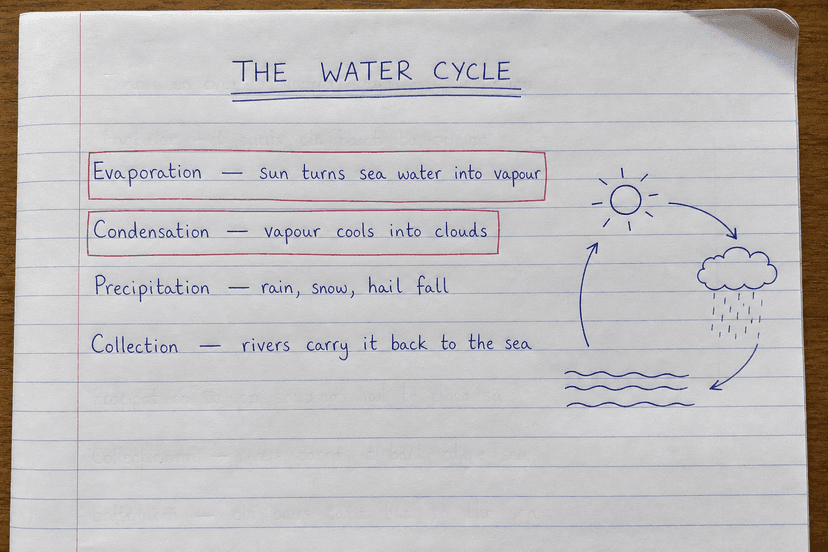 THE WATER CYCLE
Evaporation — sun turns sea water into vapour
Condensation — vapour cools into clouds
Precipitation — rain, snow, hail fall
Collection — rivers carry it back to the sea